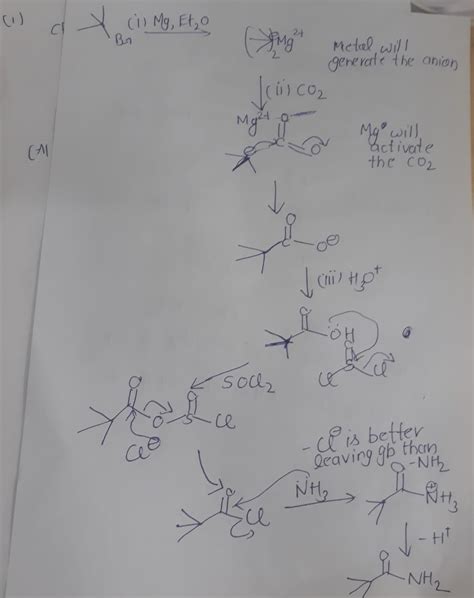 (1) (i) Mg, Et2O
Br
( )2 Mg2+
Metal will
generate the anion
(ii) CO2
Mg2+ O
C O
Mg will
activate
the CO2
O
C O⊖
(iii) H3O+
O
ÖH
O
S
Cl Cl
SOCl2
O O
O S Cl
Cl⊖
- Cl⊖ is better
leaving gb than
- NH2
O
Cl
NH3
O ⊕
NH3
- H+
O
NH2